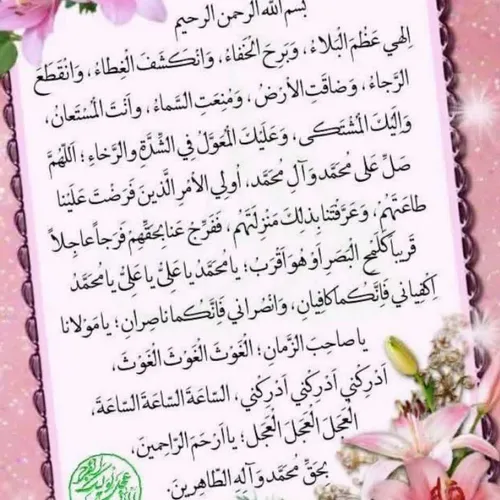 بسم الله الرحمن الرحيم
اِلهي عَظُمَ الْبَلاءُ، وَبَرِحَ الْخَفاءُ، وَانْكَشَفَ الْغِطاءُ، وَانْقَطَعَ
الرَّجاءُ، وَضاقَتِ الاَْرْضُ، وَمُنِعَتِ السَّماءُ، واَنْتَ الْمُسْتَعانُ،
وَاِلَيْكَ الْمُشْتَكى، وَعَلَيْكَ الْمُعَوَّلُ فِي الشِّدَّةِ والرَّخاءِ؛ اَللّهُمَّ
صَلِّ عَلى مُحَمَّد وَآلِ مُحَمَّد، اُولِي الاَْمْرِ الَّذينَ فَرَضْتَ عَلَيْنا
طاعَتَهُمْ، وَعَرَّفْتَنا بِذلِكَ مَنْزِلَتَهُم، فَفَرِّجْ عَنا بِحَقِّهِمْ فَرَجاً عاجِلاً
قَريباً كَلَمْحِ الْبَصَرِ اَوْ هُوَ اَقْرَبُ؛ يا مُحَمَّدُ يا عَلِيُّ يا عَلِيُّ يا مُحَمَّدُ
اِكْفِياني فَاِنَّكُما كافِيانِ، وَانْصُراني فَاِنَّكُما ناصِرانِ؛ يا مَوْلانا
يا صاحِبَ الزَّمانِ؛ الْغَوْثَ الْغَوْثَ الْغَوْثَ،
اَدْرِكْني اَدْرِكْني اَدْرِكْني، السّاعَةَ السّاعَةَ السّاعَةَ،
الْعَجَلَ الْعَجَلَ الْعَجَلَ؛ يا اَرْحَمَ الرّاحِمينَ،
بِحَقِّ مُحَمَّد وَآلِهِ الطّاهِرينَ.